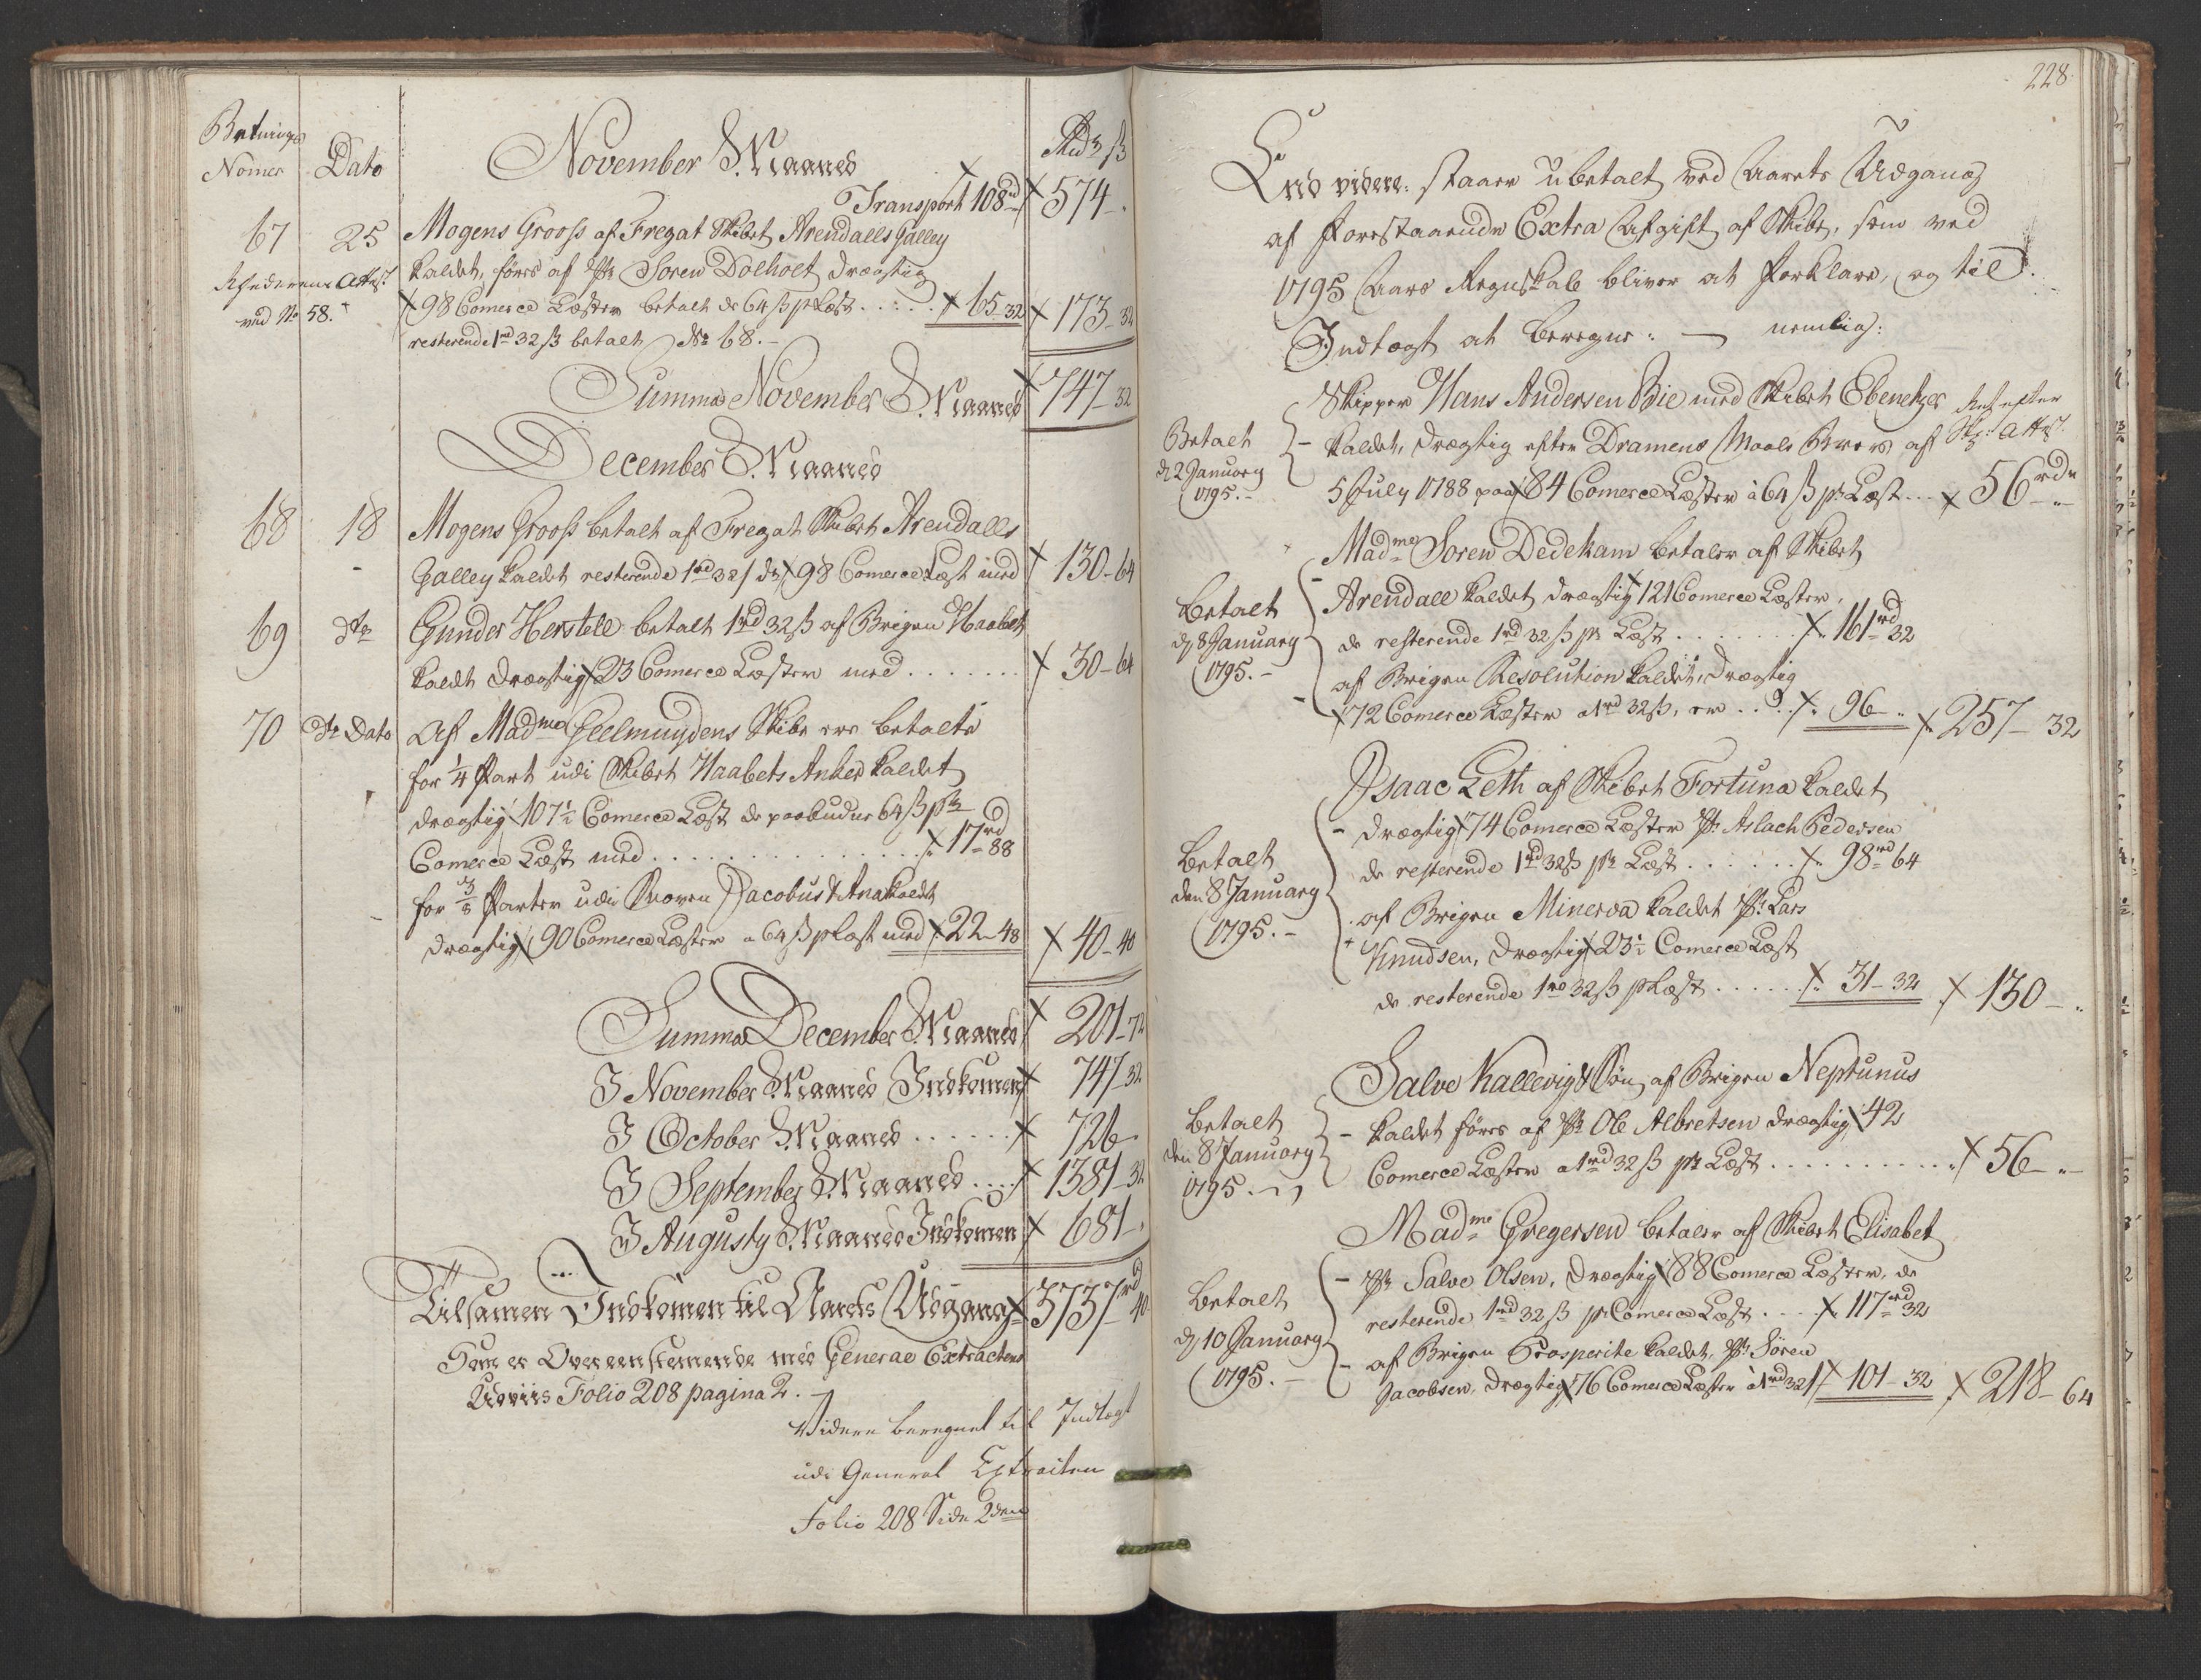 Betnings
Nomer
Dato
November Maaned
Rd ß
Transport 108rd 574 -
67 25 Mogens Grooss af Fregat Skibet Arendalls Galley
Rhederens Attest kaldet, føres af Skr Soren Dolholt drægtig
ved No 58. 98 Comerce Læster betalt de 64 ß pr Læst . . . . 65-32 173-32
resterende 1rd 32 ß betalt No 68. -
Summa November Maaned 747-32
December Maaned
68 18 Mogens Grooss betalt af Fregat Skibet Arendalls
Galley kaldet resterende 1rd 32 ß de 98 Comerce Læst med 130-64
69 dto Gunder Herstell betalt 1rd 32 ß af Brigen Haabet
kaldt drægtig 23 Comerce Læster med . . . . . . . 30-64
70 dto Dato Af Madme Geelmuydens Skibe ere betalte
for 1/4 Part udi Skibet Haabets Anker kaldet
drægtig 107 1/2 Comerce Læst de paabudne 64 ß pr
Comerce Læst med . . . . . . . . . . . . . . 17rd 88
for 3/8 Parter udi Skoven Jacobus & Ana kaldet
drægtig 90 Comerce Læster a 64 ß p Læst med 22-48 40-40
Summa December Maaned 201-72
I November Maaned Indkomen 747-32
I October Maaned . . . . . . 726
I September Maaned . . . . 1381-32
I Augusty Maaned Indkomen 681 -
Tilsamen Indkomen til Aarets Udgang 3737rd 40
Som er Overeenstemende med General Extracten
Udviis Folio 208 pagina 2. -
Videre beregnet til Indtægt
udi General Extracten
Folio 208 Side 2den
228
End videre: staaer Ubetalt ved Aarets Udgang
af forestaaende Extra Afgift af Skibe, som ved
1795 Aars Regnskab bliver at forklare, og til
Indtægt at beregne: — nemlig:
Skipper Hans Andersen Bie med Skibet Ebenetzer
Betalt kaldet, drægtig efter Dramens Maale Brev af
d 2 January
1795. - 5 July 1788 paa 84 Comerce Læster à 64 ß pr Læst . . . 56rdr -
Madme Soren Dedekam betaler af Skibet
Betalt Arendall kaldet drægtig 121 Comerce Læster,
d 8 January de resterende 1rd 32 ß pr Læst . . . . . . . 161rd 32
1795. - af Brigen Resolution kaldet, drægtig
72 Comerce Læster a 1rd 32 ß, er . . . . 96 .. 257-32
Isaac Leth af Skibet Fortuna kaldet
drægtig 74 Comerce Læster Skr Aslach Pedersen
Betalt de resterende 1rd 32 ß pr Læst . . . . . . 98rd 64
den 8 January af Brigen Minerva kaldet Skr Lars
1795. - Knudsen, drægtig 23 1/2 Comerce Læst
de resterende 1rd 32 ß p Læst . . . . . 31-32 130 - ..
Salve Kallevig & Søn, af Brigen Neptunus
Betalt kaldet føres af Skr Ole Albretsen drægtig 42
den 8 January
1795. Comerce Læster a 1rd 32 ß pr Læst . . . . . . . . . . . 56 - .. -
Madme Gregersen betaler af Skibet Elisabet
Skr Salve Olsen, drægtig 88 Comerce Læster, de
Betalt resterende 1rd 32 ß pr Comerce Læst . . . . 117rd 32
d 10 January af Brigen Prosperite kaldet, Skr Søren
1795. - Jacobsen, drægtig 76 Comerce Læster à 1rd 32 ß 101-32 218-64